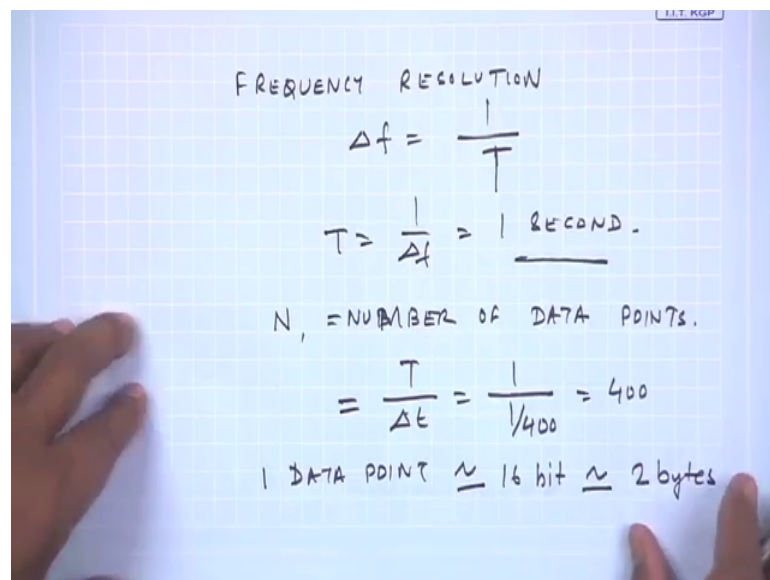 I.I.T. KGP
FREQUENCY RESOLUTION
Δf = 1/T
T = 1/Δf = 1 SECOND.
N, = NUMBER OF DATA POINTS.
= T/Δt = 1/1/400 = 400
1 DATA POINT ~ 16 bit ~ 2 bytes